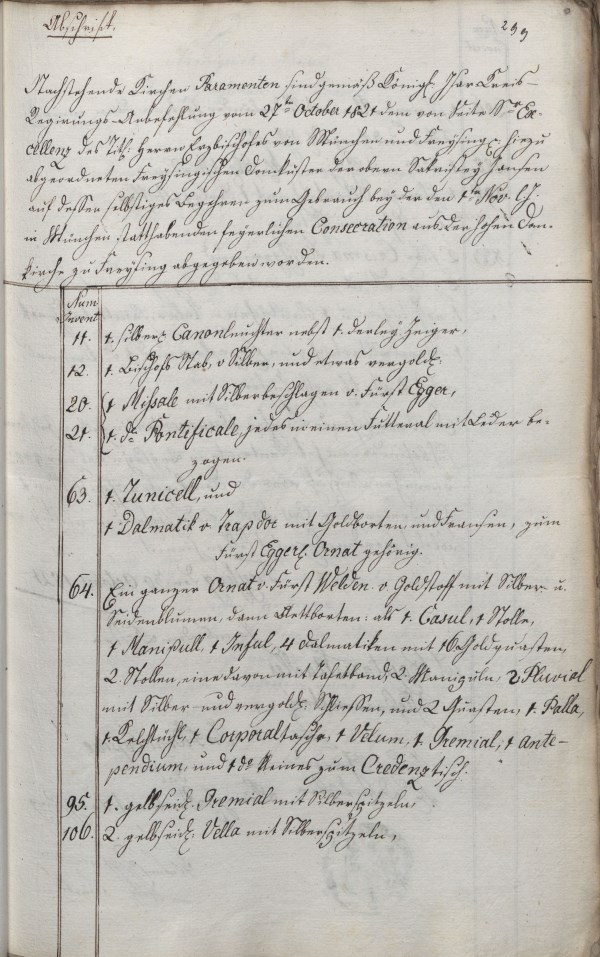 Abschrift.
299
Nachstehende Kirchen Paramenten sind gemäß Königl. Isar Kreis-
Regierungs-Anbefehlung vom 27ten October 1821 dem von Seite Sr Ex-
cellenz des Titl: Herrn Erzbischofes von München und Freysing hiezu
abgeordneten Freysingischen Domküster der obern Sakristey
auf dessen selbstiges Begehren zum Gebrauch bey der den 1ten Nov. l.J.
in München statthabenden feyerlichen Consecration aus der hohen Dom-
kirche zu Freysing abgegeben worden.
Num
Invent
11. 1. silber. Canonleuchter nebst 1. derley Zeiger,
12. 1. Bischofs Stab, v Silber, und etwas vergold.
20. 1 Missale mit Silberbeschlagen v. Fürst Egger,
21. 1. do Pontificale, jedes in einem Futteral mit Leder be-
zogen.
63. 1. Tunicell, und
1 Dalmatik v Trapdor mit Goldborten und Fransen, zum
Fürst Egger. Ornat gehörig.
64. Ein ganzer Ornat v. Fürst Welden v. Goldstoff mit Silber- u.
Seidenblumen, dann Borten: als 1. Casul, 1 Stolle,
1 Manipull, 1 Inful, 4 Dalmatiken mit 16 Goldquasten,
2. Stollen, eine davon mit Tafetband, 2 Manipuln, 2 Pluvial
mit Silber- und vergold. Schliessen, und 2 Quasten, 1. Palla,
1. Kelchtüchl, 1 Corporaltasche, 1 Velum, 1. Gremial, 1 Ante-
pendium, und 1 do kleines zum Credenztisch.
95. 1. gelbseid. Gremial mit Silberspitzeln,
106. 2. gelbseid. Vella mit Silberspitzeln,